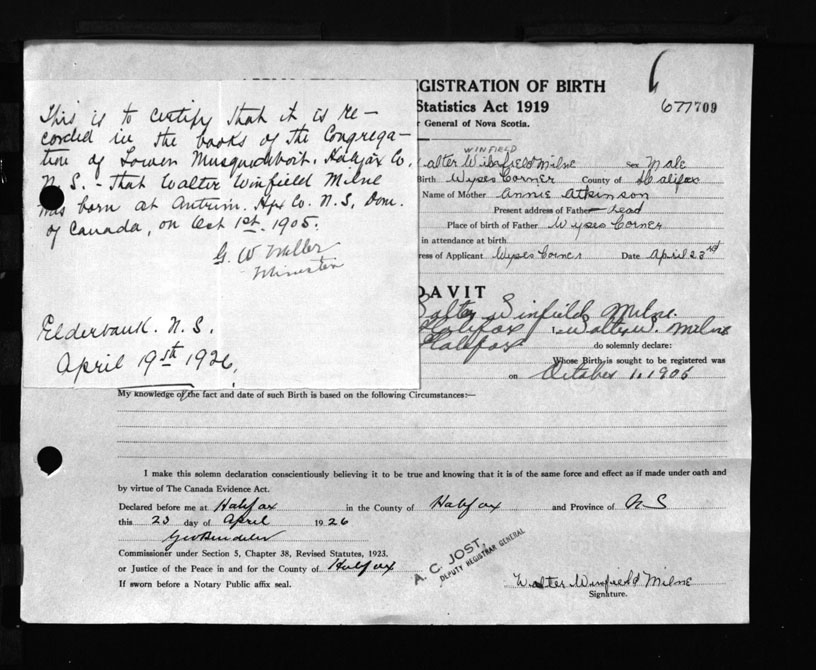 This is to certify that it is re-
corded in the books of the Congrega-
tion of Lower Musquodoboit. Halifax Co.
N. S. - that Walter Winfield Milne
was born at Antrim. Hfx Co. N. S. Dom.
of Canada, on Oct 1st. 1905.
G. W Miller
Minister
Elderbank. N. S.
April 19st 1926.
EGISTRATION OF BIRTH
Statistics Act 1919
677709
r General of Nova Scotia.
WINFIELD
alter Winfield Milne Sex Male
Birth Wyses Corner County of Halifax
Name of Mother Annie Atkinson
Present address of Father - dead
Place of birth of Father Wyses Corner
in attendance at birth
ress of Applicant Wyses Corner Date April 23rd
DAVIT
Walter Winfield Milne.
Halifax I, Walter W. Milne
Halifax do solemnly declare:
Whose Birth is sought to be registered was
on October 1, 1905
My knowledge of the fact and date of such Birth is based on the following Circumstances:—
I make this solemn declaration conscientiously believing it to be true and knowing that it is of the same force and effect as if made under oath and
by virtue of The Canada Evidence Act.
Declared before me at Halifax in the County of Halifax and Province of NS
this 23 day of April 1926
Commissioner under Section 5, Chapter 38, Revised Statutes, 1923.
or Justice of the Peace in and for the County of Halifax
A. C. JOST,
DEPUTY REGISTRAR GENERAL
If sworn before a Notary Public affix seal.
Walter Winfield Milne
Signature.